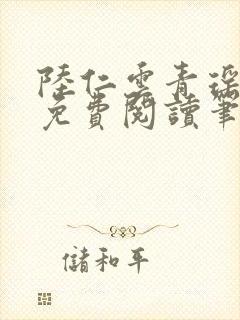 陸仁雲青瑤
免費閱讀筆
儲和平